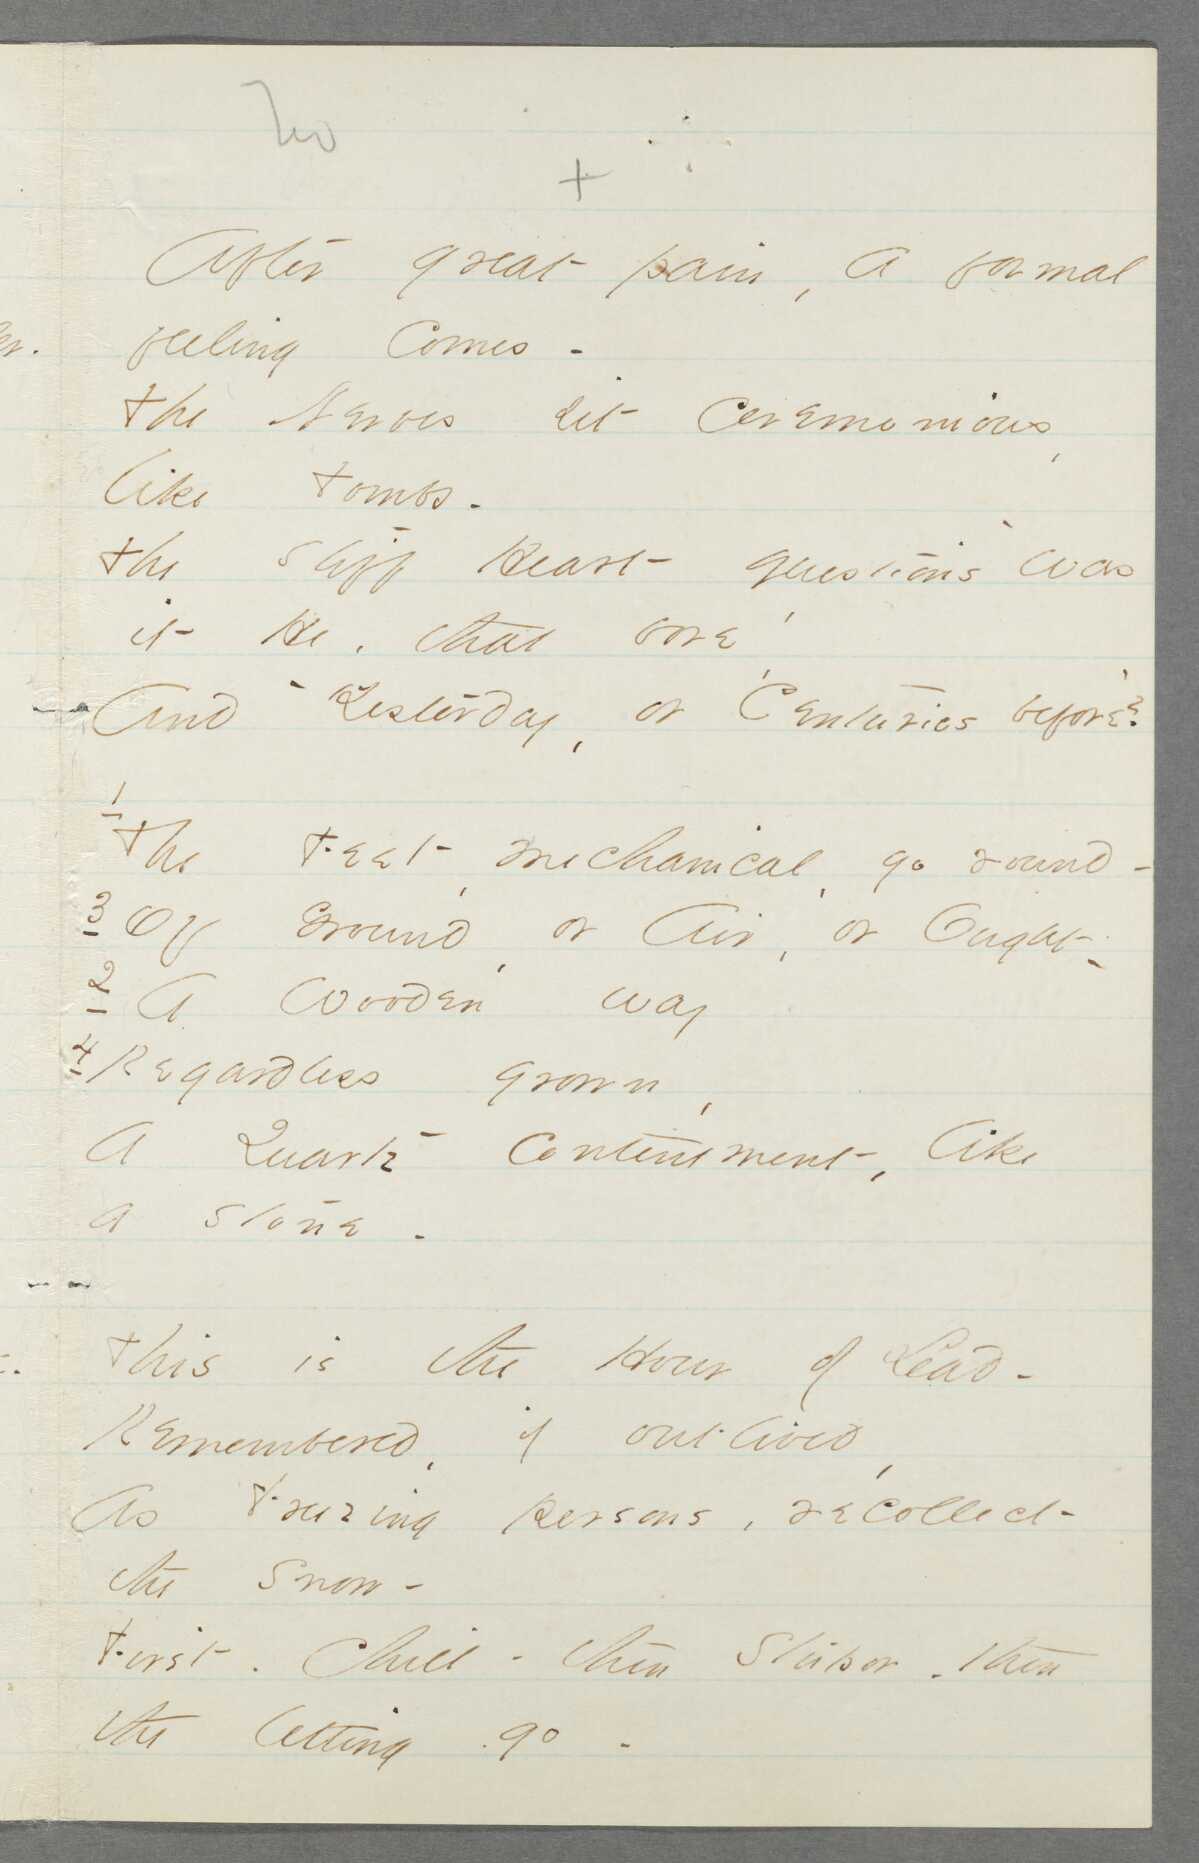 +
After great pain, a formal
feeling comes -
The Nerves sit Ceremonious,
like Tombs -
The stiff Heart questions 'was
it He, that bore,'
And 'Yesterday, or 'Centuries before'?
1 The Feet, mechanical, go round -
3 Of Ground, or Air, or Ought -
2 A Wooden way
4 Regardless grown,
A Quartz contentment, like
a stone -
This is the Hour of Lead -
Remembered, if outlived,
As Freezing persons, recollect
the Snow -
First - Chill - then Stupor - then
the letting go -